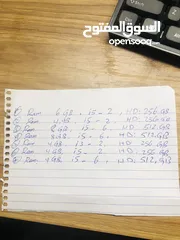 السوق المفتوح
opensooq.com
① Ram 6 GB, i5 - 2, HD: 256 GB
Ram 4 GB, i5 - 2, HD: 256 GB
Ram 8 GB, i5 - 6, HD: 512 GB
Ram 4 GB, i5 - 6, HD: 512 GB
Ram 4 GB, i5 - 2, HD: 256 GB
Ram 4 GB i5 - 2, HD: 256 GB
Ram 4 GB i5 - 6, HD: 512 GB